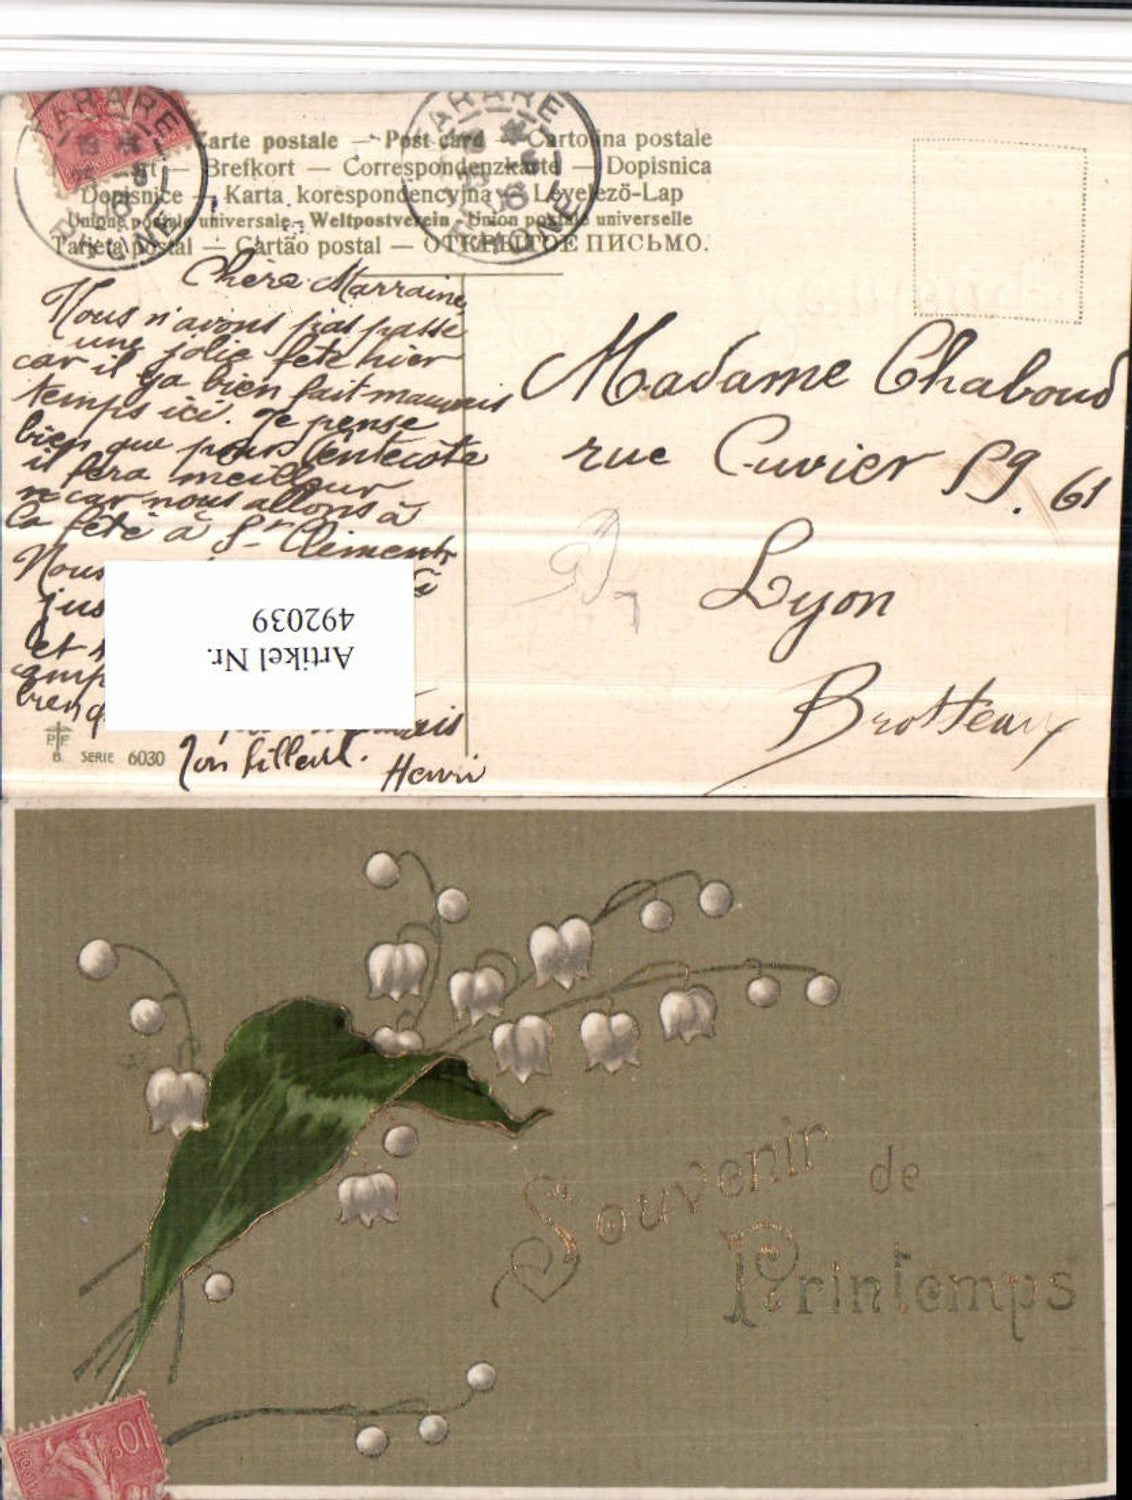 Carte postale — Post card — Cartolina postale
Brefkort — Correspondenzkarte — Dopisnica
Dopisnice — Karta korespondencyjna — Levelező-Lap
Unione postale universale - Weltpostverein - Union postale universelle
Tarjeta postal — Cartão postal — ОТКРЫТОЕ ПИСЬМО.
TARARE
RHONE
TARARE
RHONE
Chère Marraine,
Nous n'avons pas passé
une jolie fête hier
car il y a bien fait mauvais
temps ici. Je pense
bien que pour Pentecôte
il fera meilleur
car nous allons à
la fête à St Clément
Nous
jus
et
bien
ais
Ton filleul.
Henri
Madame Chaboud
rue Cuvier 59. 61
Lyon
Brotteaux
Artikel Nr.
492039
PF
6. SERIE 6030
Souvenir de
Printemps
10c